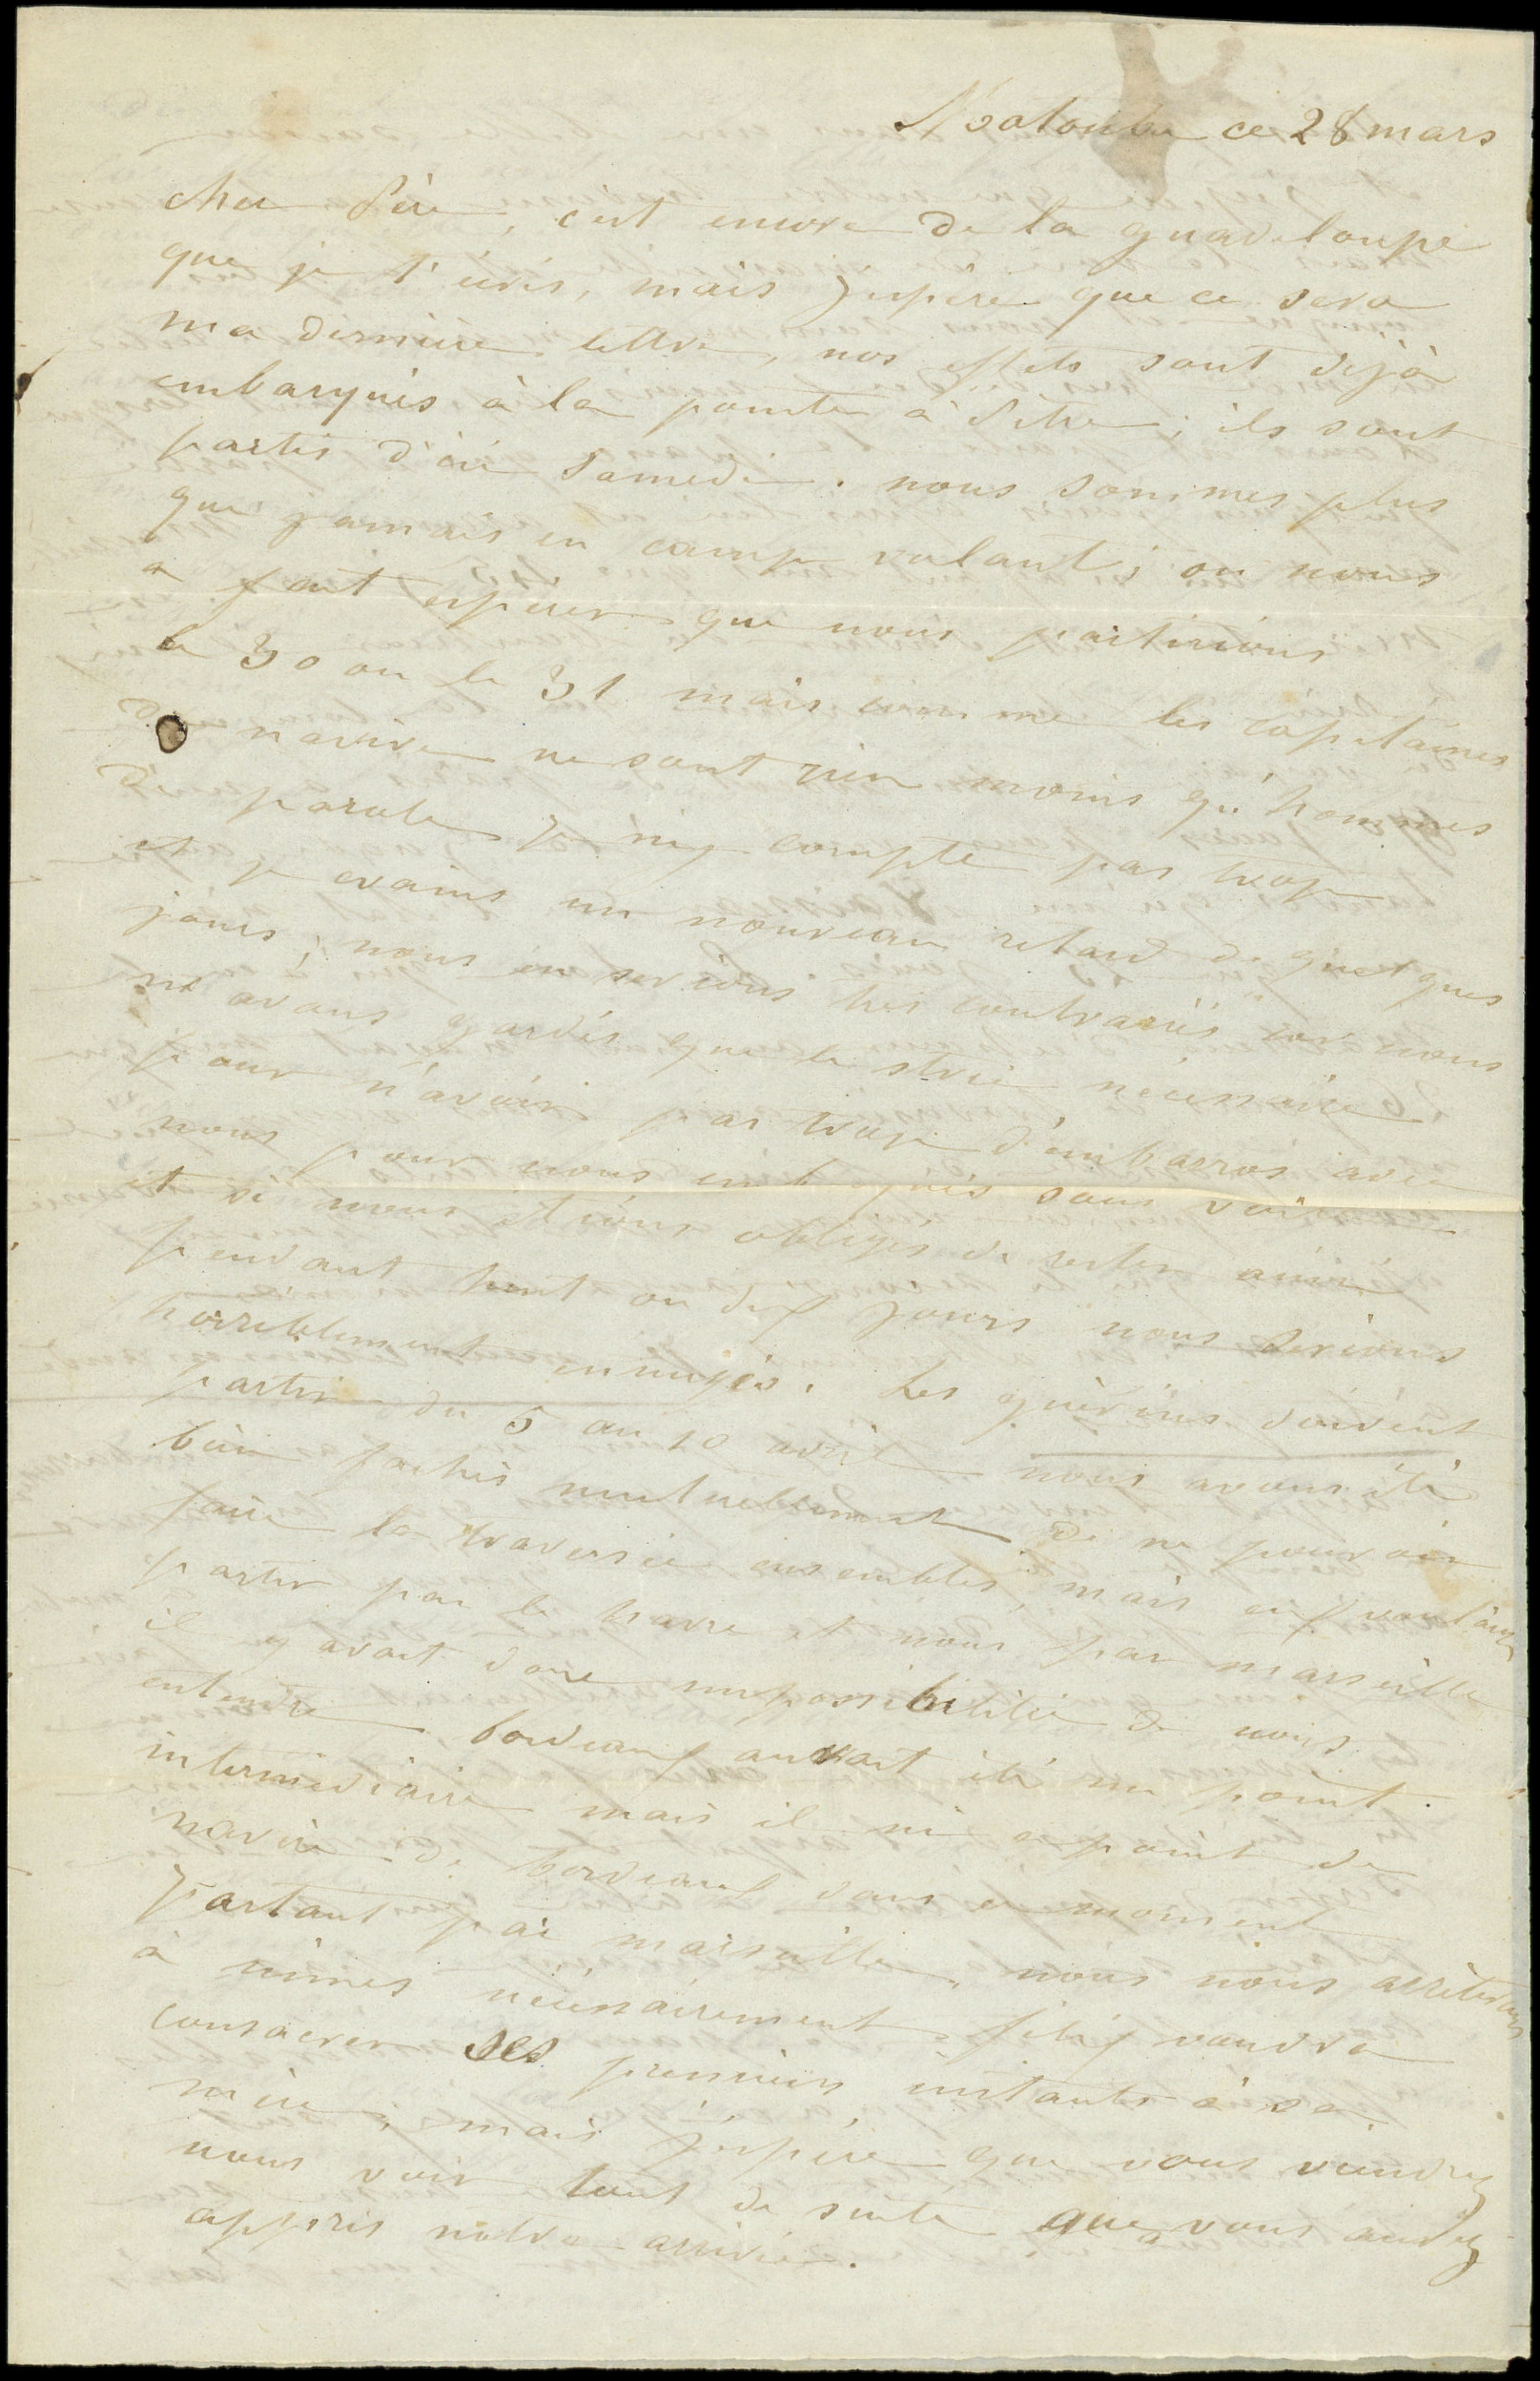 Matouba ce 28 mars
cher Père, c'est encore de la guadeloupe
que je t'écris, mais j'espère que ce sera
ma dernière lettre, nos effets sont déjà
embarqués à la pointe à Pitre; ils sont
partis d'ici Samedi. nous sommes plus
que jamais en camp volant; on nous
a fait espérer que nous partirions
le 30 ou le 31 mais comme les capitaines
de navire ne sont rien moins qu'hommes
de parole je n'y compte pas trop
et je crains un nouveau retard de quelques
jours; nous en serions très contrariés car nous
n'avons gardés que le strict nécessaire
pour n'avoir pas trop d'embarras avec
nous pour nous sans
et si nous étions obligés de rester ainsi
pendant huit ou dix jours nous serions
horriblement ennuyés. les guérins doivent
partir du 5 au 10 avril nous avons été
bien fachés mutuellement de ne pouvoir
faire la traversée ensembles, mais eux voulaient
partir par le havre et nous par marseille
il y avait donc impossibilité de nous
entendre bordeaux aurait été un point
intermédiaire mais il ni a point de
navire de bordeaux dans ce moment
partant par marseille, nous nous arrêterons
à nimes nécéssairement, félix voudra
consacrer ses premiers instants à sa
mère, mais j'espère que vous viendrez
nous voir tout de suite que vous aurez
appris notre arrivée.